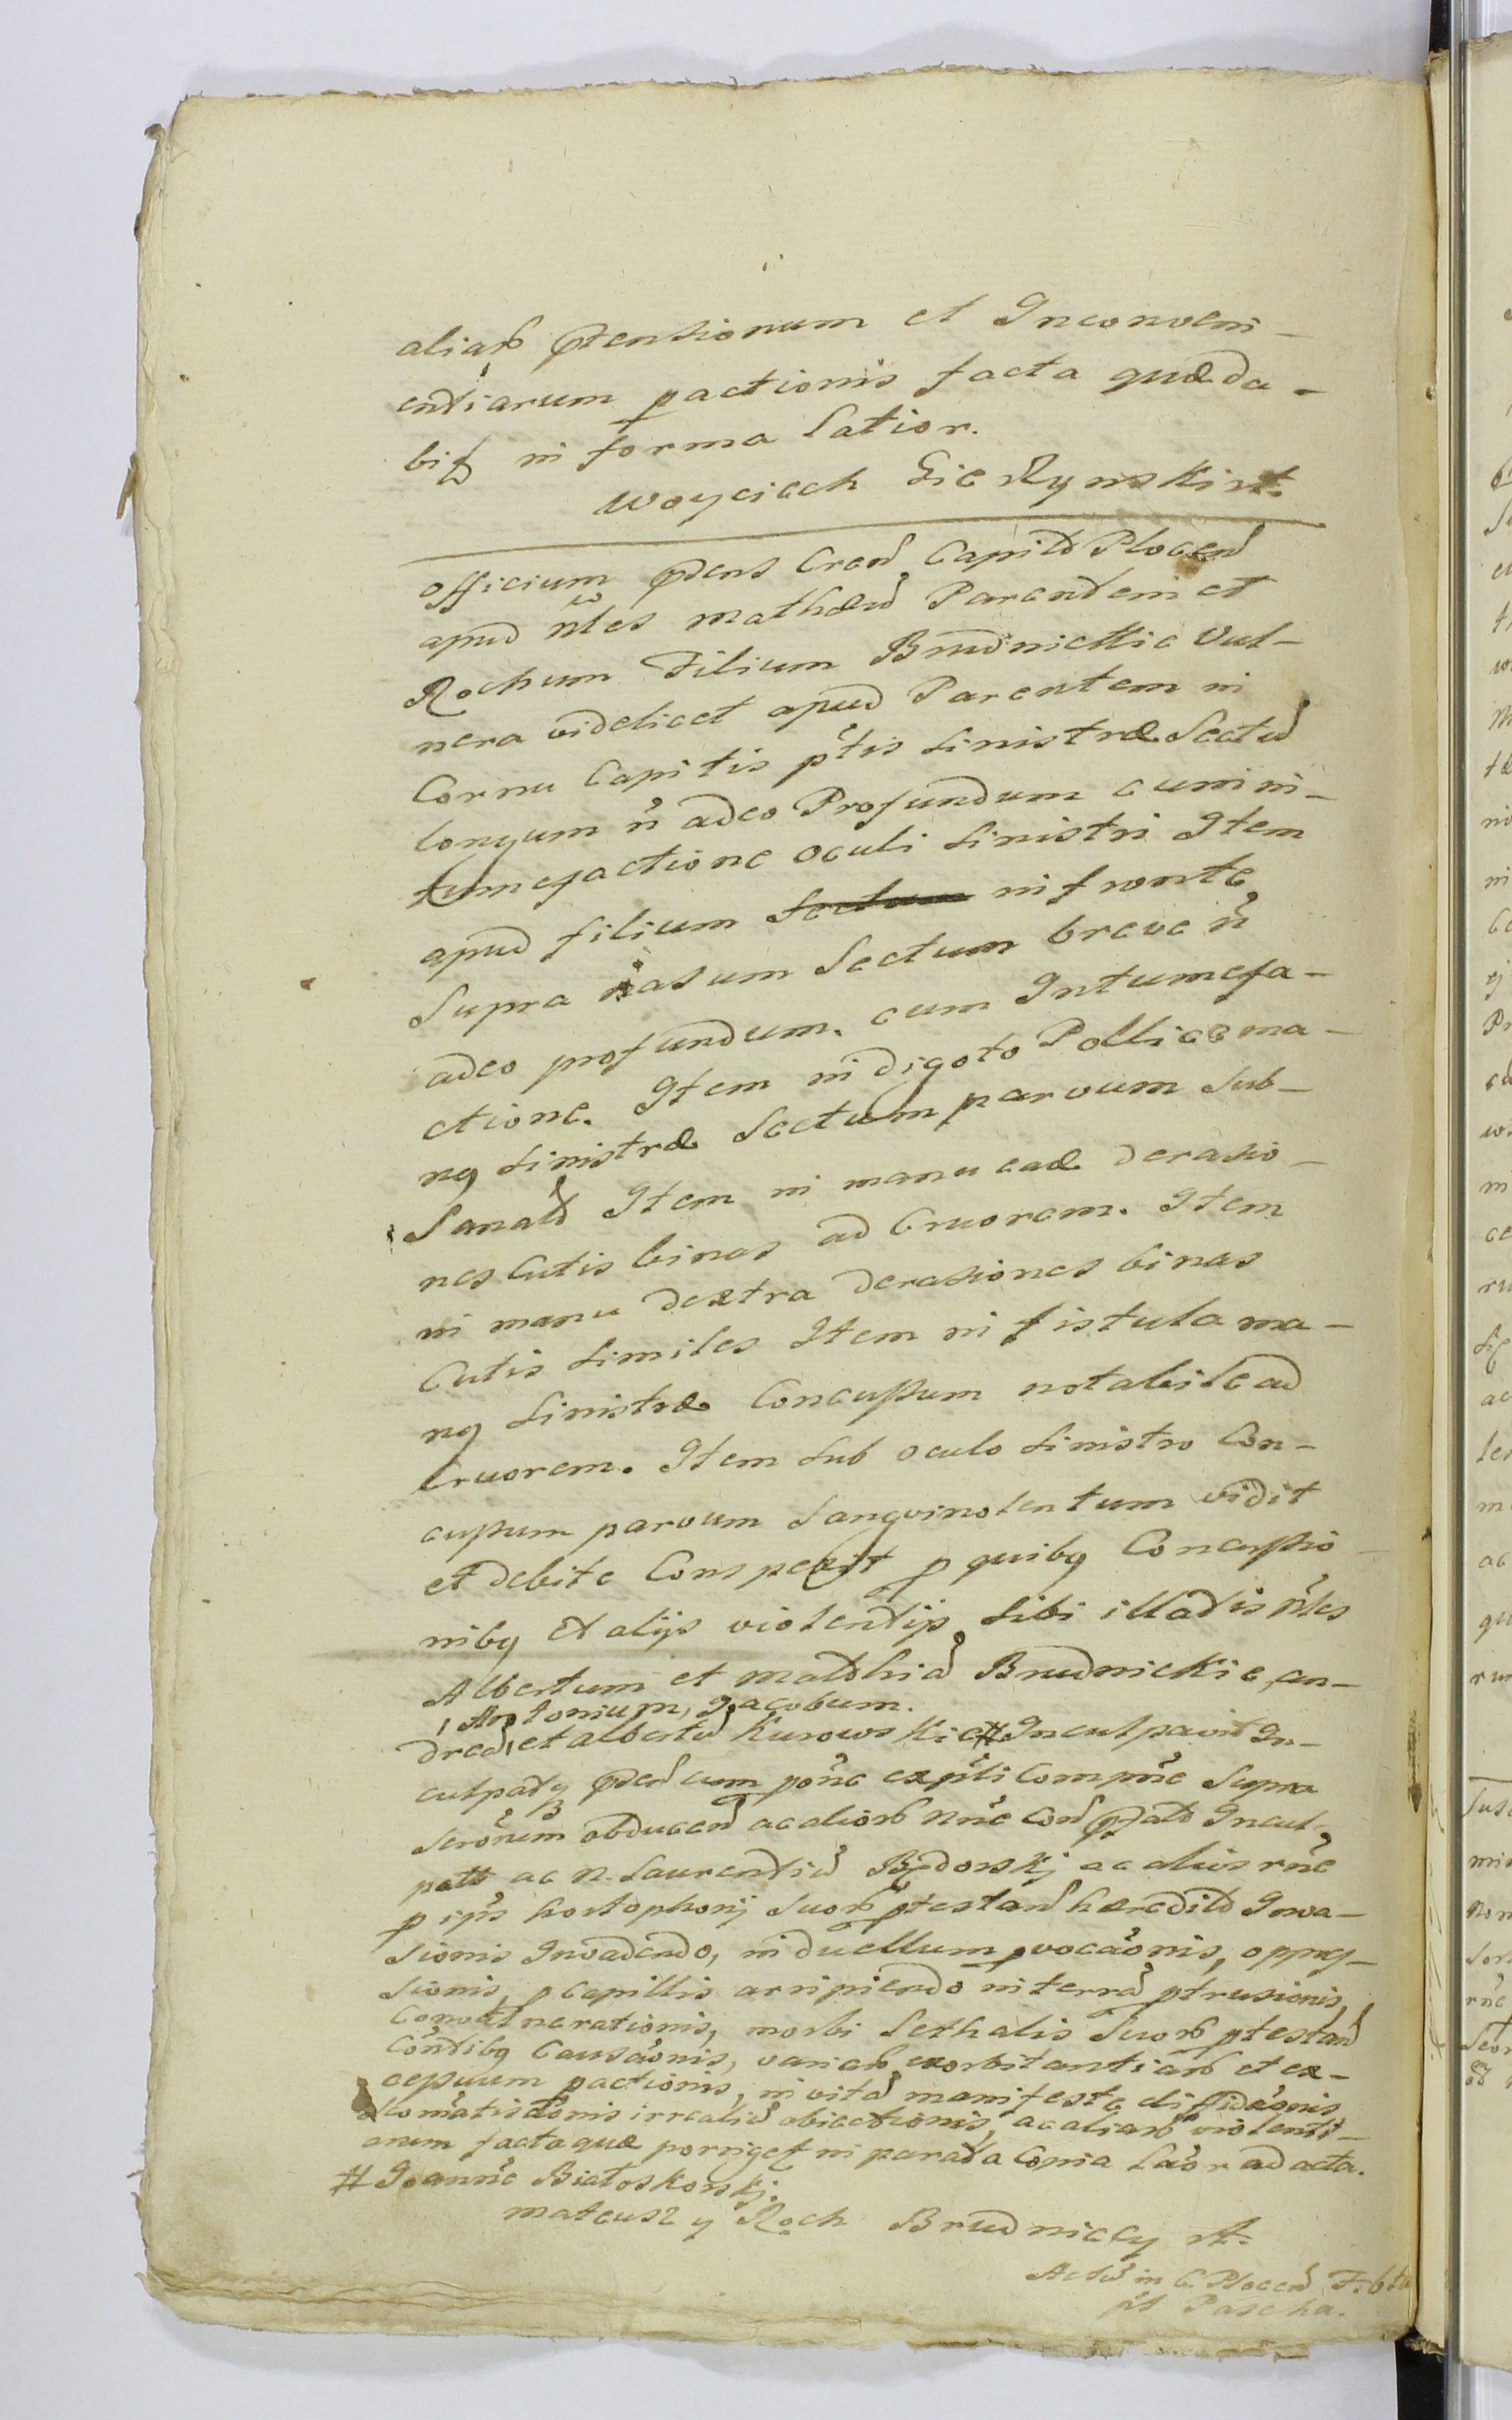 aliarb ꝓtensionum et Inconveni-
entiarum pactionis facta quæ da-
bit in forma latior.
Woyciech
Officium ꝓdens Cren Capitd Plocen
apud nles Mathæu Parentem et
Rochum Filium Brudnickie Vul-
nera videlicet apud Parentem in
Cornu Capitis ptis sinistræ Sectu
longum n adeo Profundum cum in-
tumefactione oculi sinistri Item
apud filium in fronte
supra nasum Sectum breve n
adeo profundum. cum Intumefa-
ctione. Item in digito Pollice ma-
nq sinistræ Sectum parvum sub-
sanatu Item in manu ead derasio-
nes Cutis binas ad Cruorem. Item
in manu dextra derasiones binas
Cutis similes Item in fistula ma-
nq sinistræ Concussum notabile ad
Cruorem. Item sub oculo sinistro Con-
cussum parvum sangvinolentum vidit
et debite Conspexit p quibq Concussio-
nibq et alijs violentijs sibi illatis nles
Albertum et Mathia Brudnickie an-
Antonium, Jacobum.
drea, et albertu Kurowskie # Inculpavit In-
culpatq ꝓden cum pone expti Compne supra
obducen ac aliorb nne Con Incul-
patt ac N. Laurentiu ac alios rne
p ips suorb ptestan hæredit Inva-
sionis Invadendo, in duellum ꝓvocaonis, oppres-
sionis, p capillis arripiendo in terra ptrusionis,
Convulnerationis, morbi lethalis suorb ptestan
Contibq Causaonis, variarb exorbitantiarb et ex-
cessuum pactionis, in vita manifeste diffidaonis
irrealiu obiectionis, ac aliarb violenti-
arum facta quæ porriget in parata Copia laor ad acta.
# Joanne Białoskorskj.
Mateusz y Roch Brudniccy
Actu in C. Plocen F. 6ta
pt Pascha.